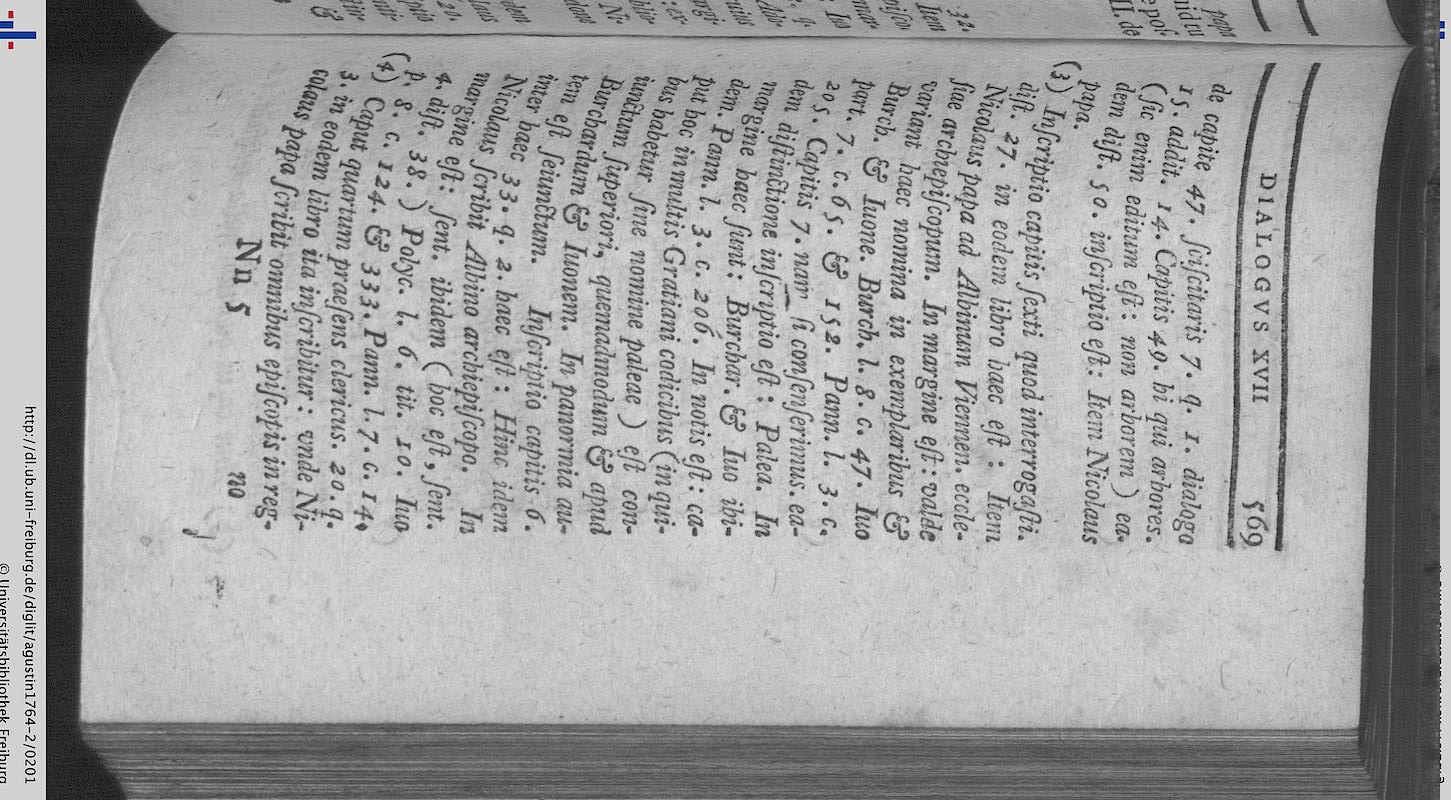 DIALOGVS XVII 569
de capite 47. ſuſcitaris 7. q. 1. dialogo
15. addit. 14. Capitis 49. hi qui arbores.
(ſic enim editum eſt: non arborem) ea-
dem diſt. 50. inſcriptio eſt: Item Nicolaus
papa.
(3) Inſcriptio capitis ſexti quod interrogaſti.
diſt. 27. in eodem libro haec eſt: Item
Nicolaus papa ad Albinum Viennen. eccle-
ſiae archiepiſcopum. In margine eſt: valde
variant haec nomina in exemplaribus &
Burch. & Iuone. Burch. l. 8. c. 47. Iuo
part. 7. c. 65. & 152. Pann. l. 3. c.
205. Capitis 7. nam ſi conſenſerimus. ea-
dem diſtinctione inſcriptio eſt: Palea. In
margine haec ſunt: Burchar. & Iuo ibi-
dem. Pann. l. 3. c. 206. In notis eſt: ca-
put hoc in multis Gratiani codicibus (in qui-
bus habetur ſine nomine paleae) eſt con-
iunctum ſuperiori, quemadmodum & apud
Burchardum & Iuonem. In panormia au-
tem eſt ſeiunctum. Inſcriptio capitis 6.
inter haec 33. q. 2. haec eſt: Hinc idem
Nicolaus ſcribit Albino archiepiſcopo. In
margine eſt: ſent. ibidem (hoc eſt, ſent.
4. diſt. 38.) Polyc. l. 6. tit. 10. Iuo
p. 8. c. 124. & 333. Pann. l. 7. c. 14.
(4) Caput quartum praeſens clericus. 20. q.
3. in eodem libro ita inſcribitur: vnde Ni-
colaus papa ſcribit omnibus epiſcopis in reg-
Nn 5 no
http://dl.ub.uni-freiburg.de/diglit/agustin1764-2/0201
© Universitätsbibliothek Freiburg